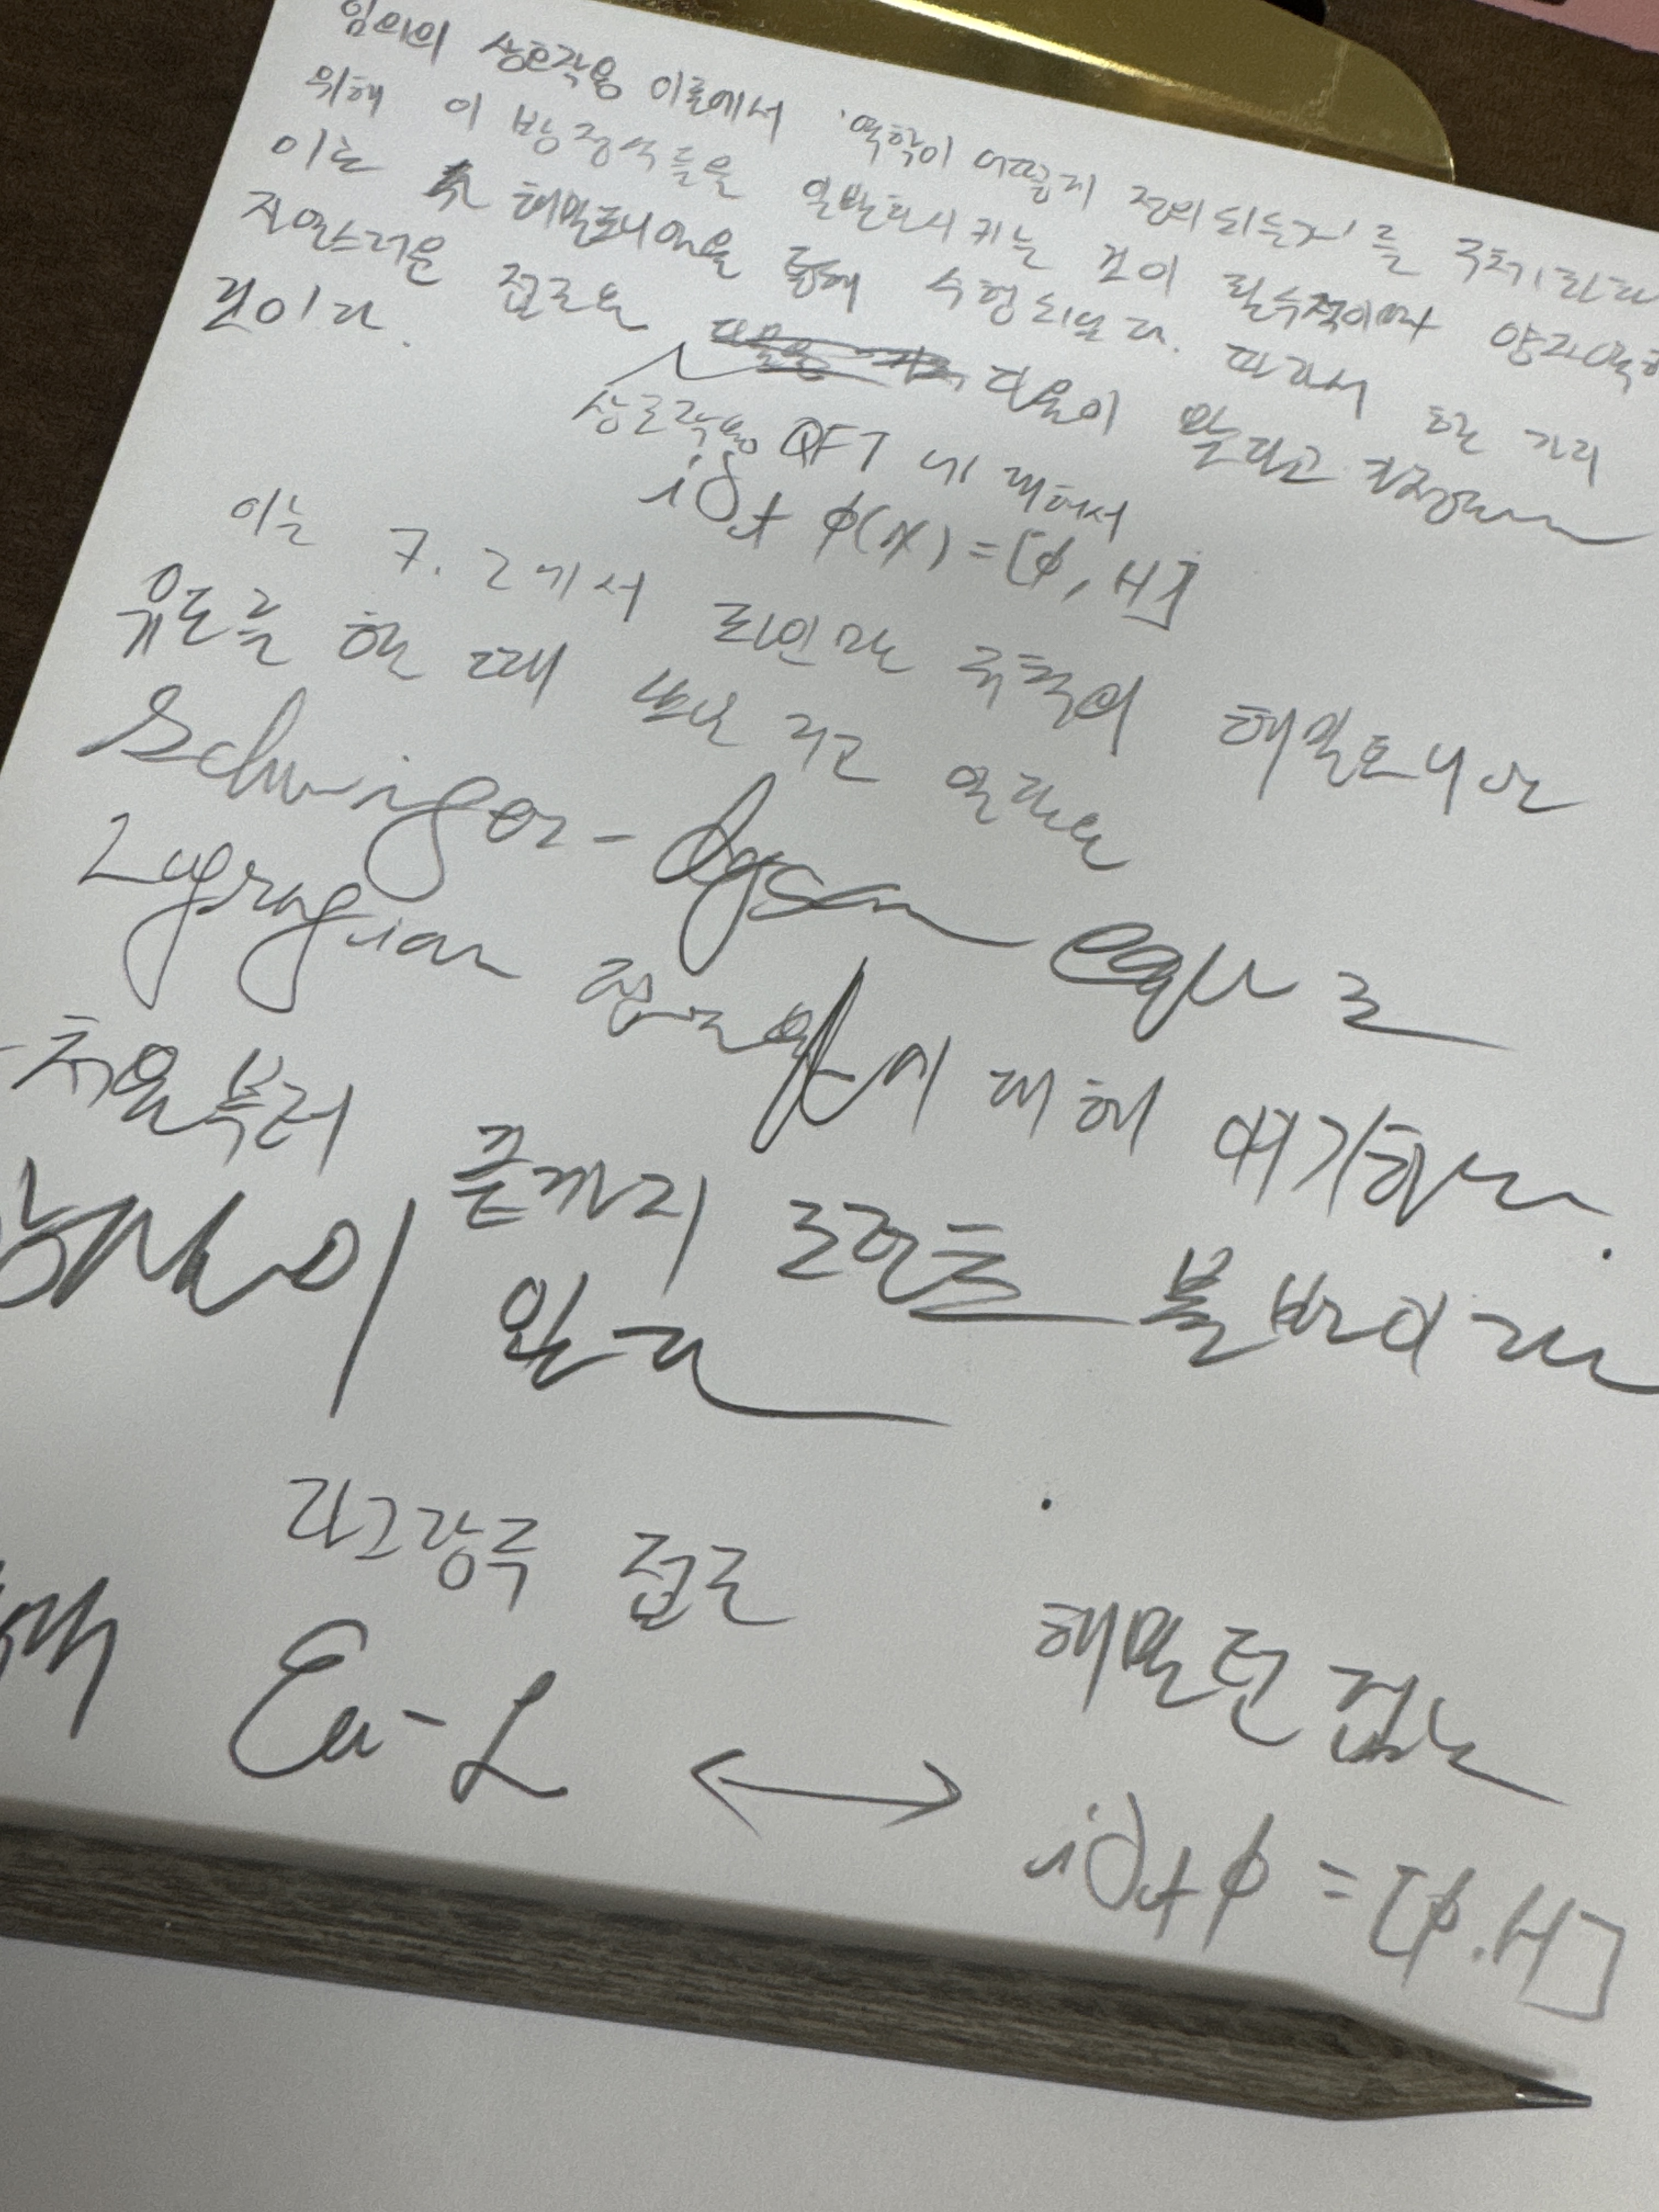 임의의 상호작용 이론에서 '역학이 어떻게 정의되는가'를 구체화
위해 이 방정식들을 일반화시키는 것이 필수적이며 양자역학
이는 해밀토니안을 통해 수행되었다. 따라서 한 가지
자연스러운 접근은 다음이 맞다고
것이다.
상호작용 QFT 에 대해서
i∂t φ(x) = [φ, H]
이는 7.2에서 파인만 규칙의 해밀토니안
유도를 할 때
Schwinger-dyson equ 로
Lagrangian 에 대해 얘기한다.
처음부터 끝까지 로렌츠 불변이라
이 있다
라그랑주 접근
해밀턴 접근
Eu-L ⟷ i∂tφ = [φ, H]